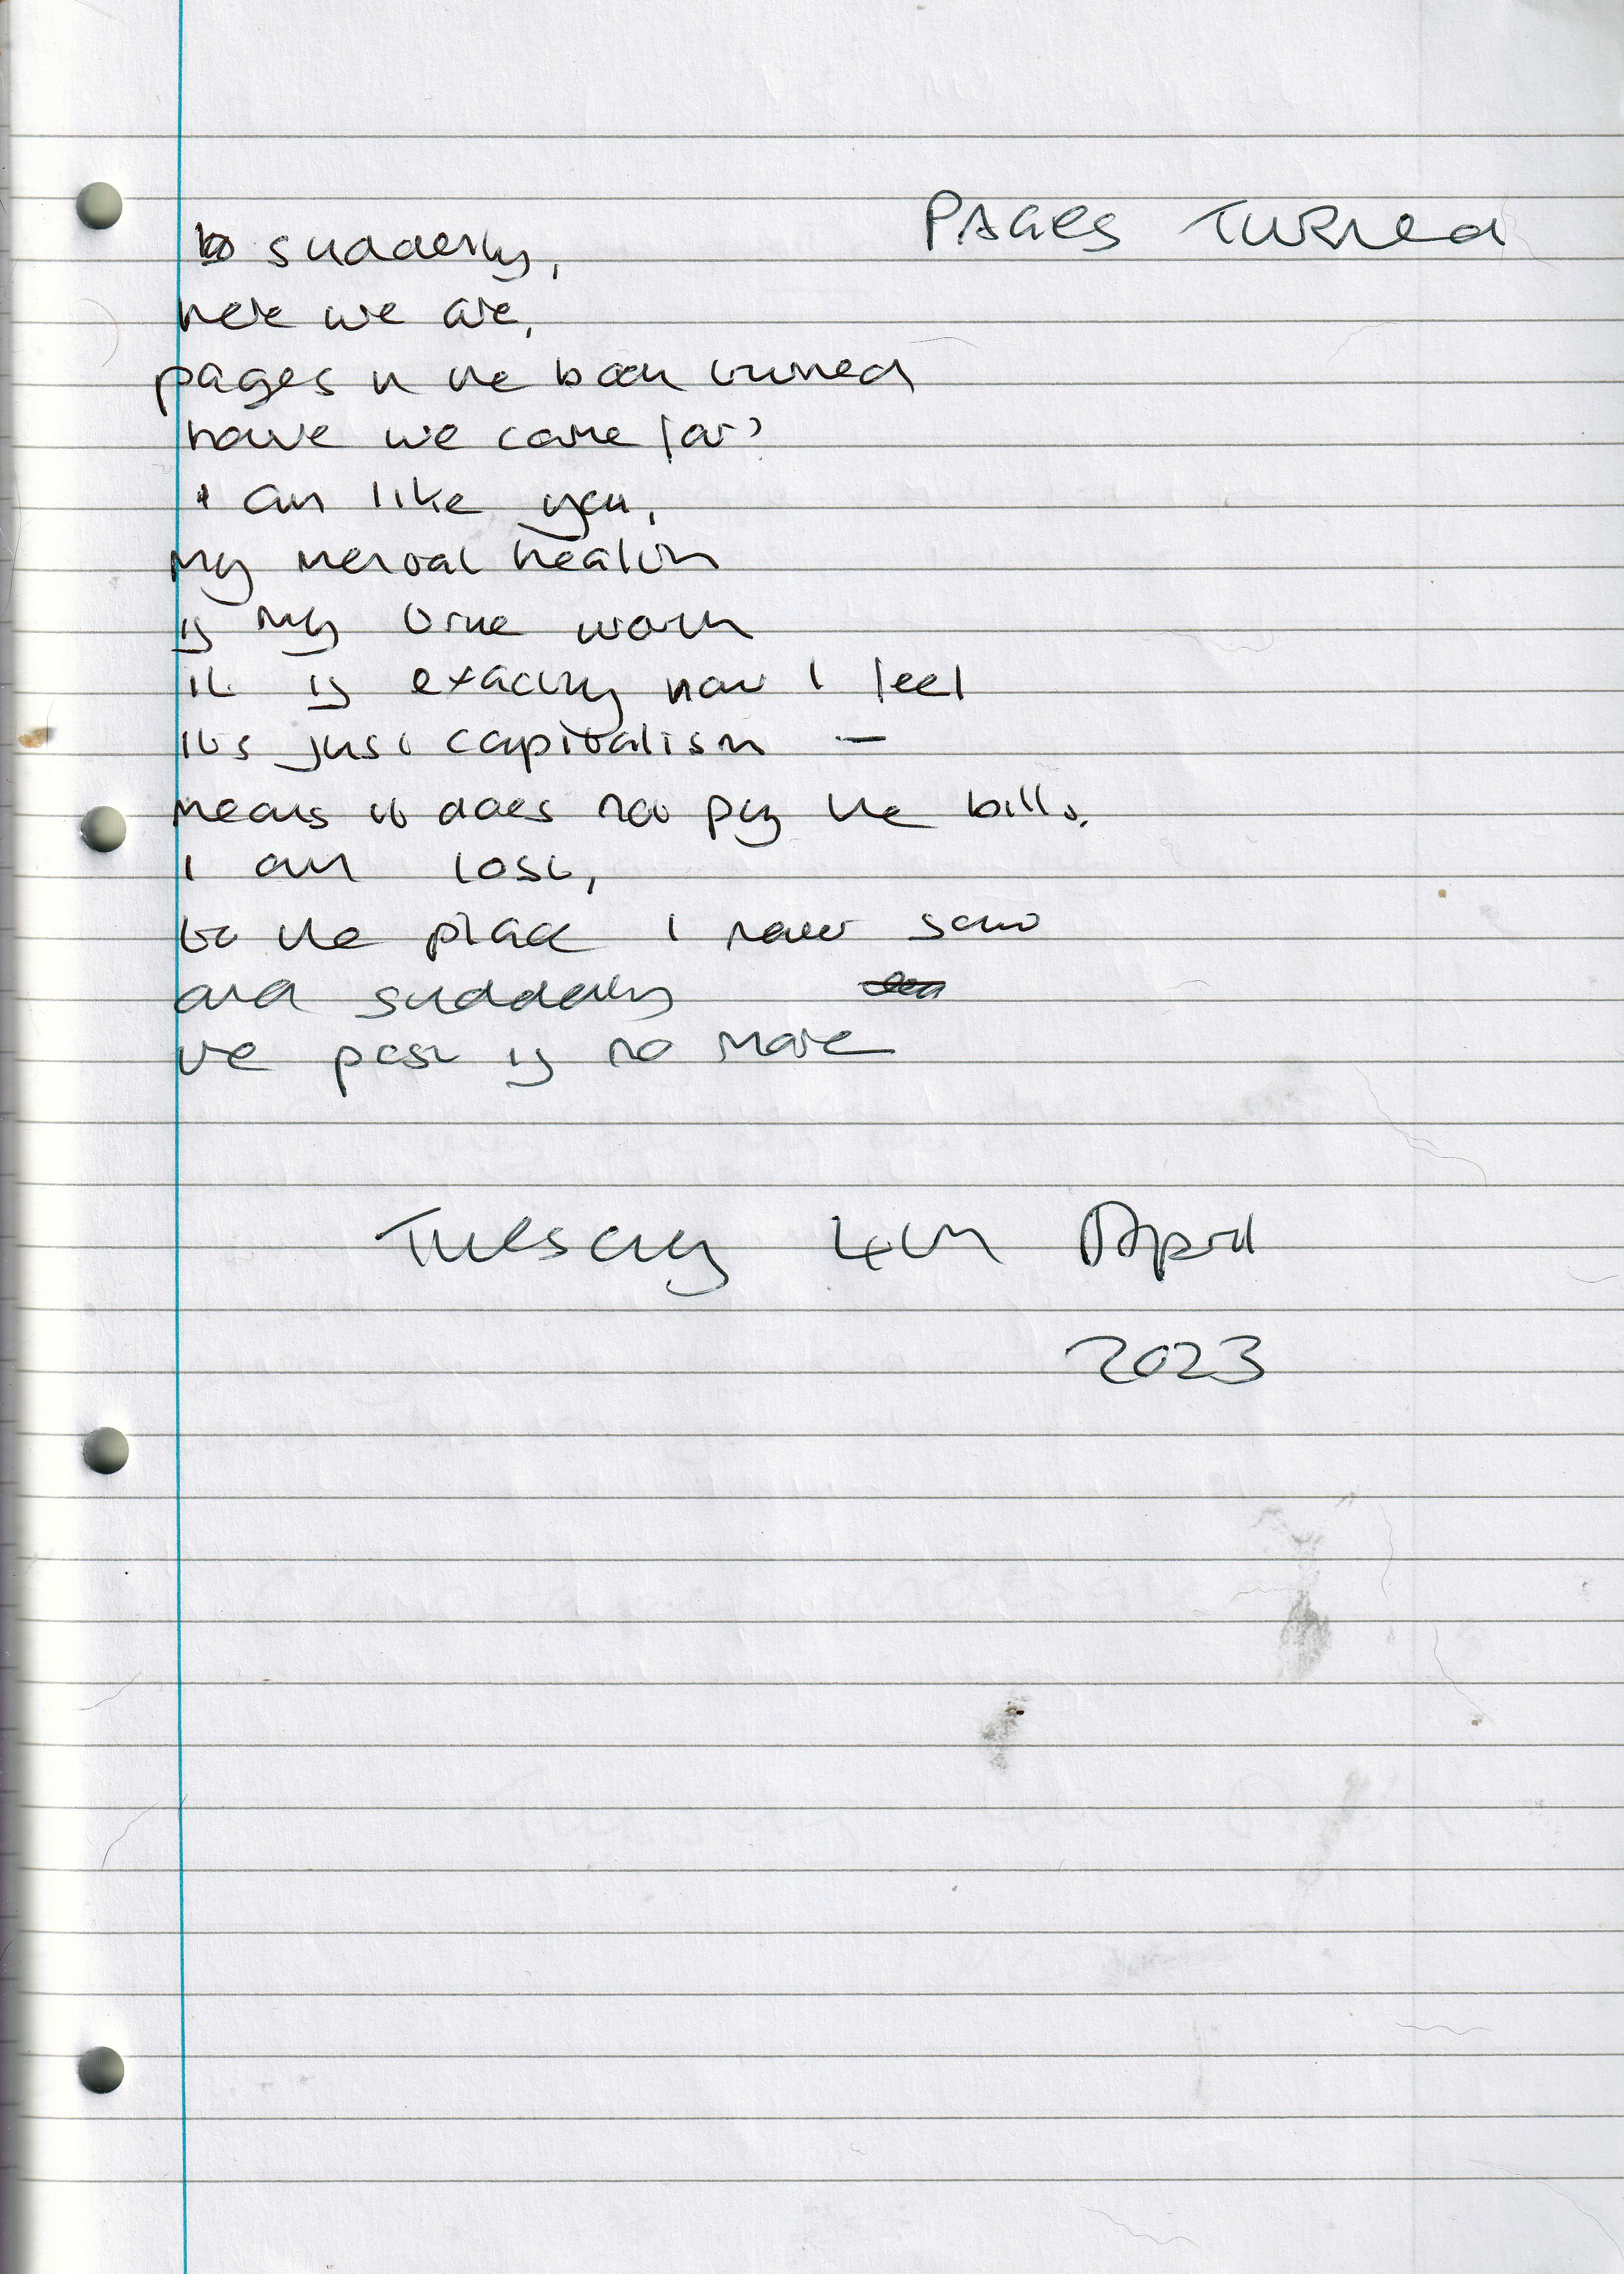 PAGES TURNED
suddenly,
here we are,
pages in the book turned
have we come far?
I am like you,
my mental health
is my true work
it is exactly how I feel
its just capitalism —
means it does not pay the bills.
I am lost,
to the place I never saw
and suddenly
the past is no more
Tuesday 4th April
2023